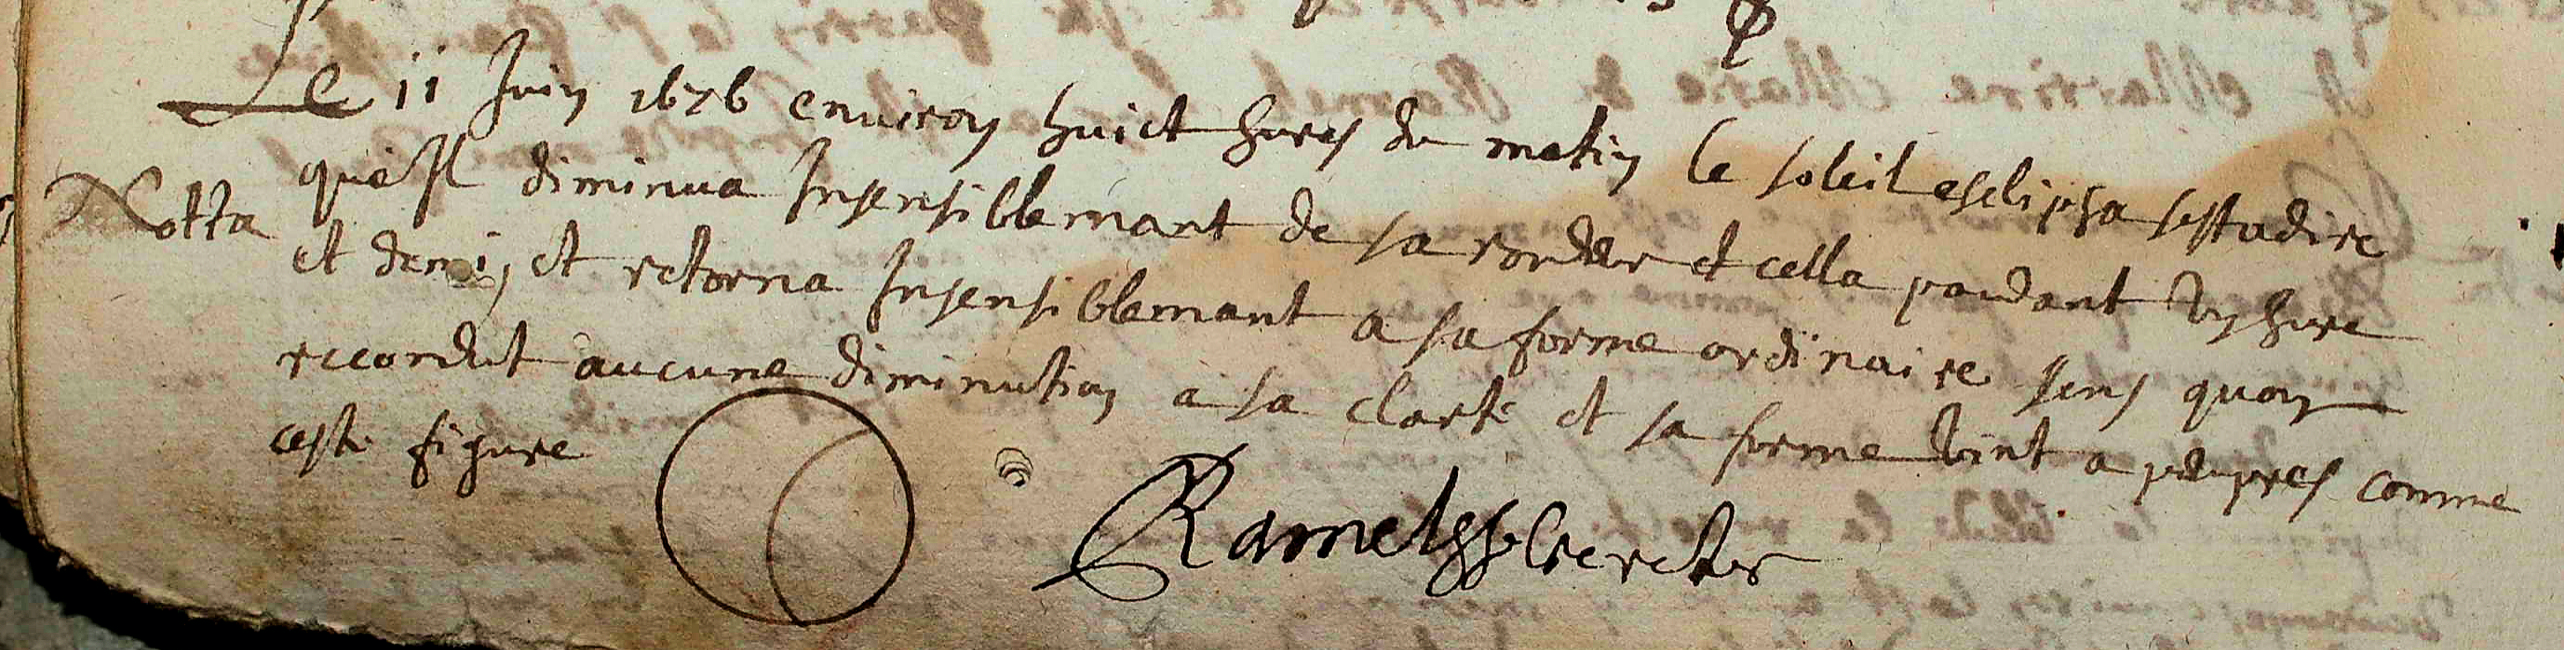 Le ii Juin 1676 environ huict hures du matin le soleil esclipsa sestadire
Notta
quest il diminua Insensiblemant de sa rondeur et cella pandant un hure
et demi, et retorna Insensiblemant a sa forme ordinaire sens quon
recondut aucune diminution a sa clarté et sa forme vint a peu pres comme
ceste figure
Ramel